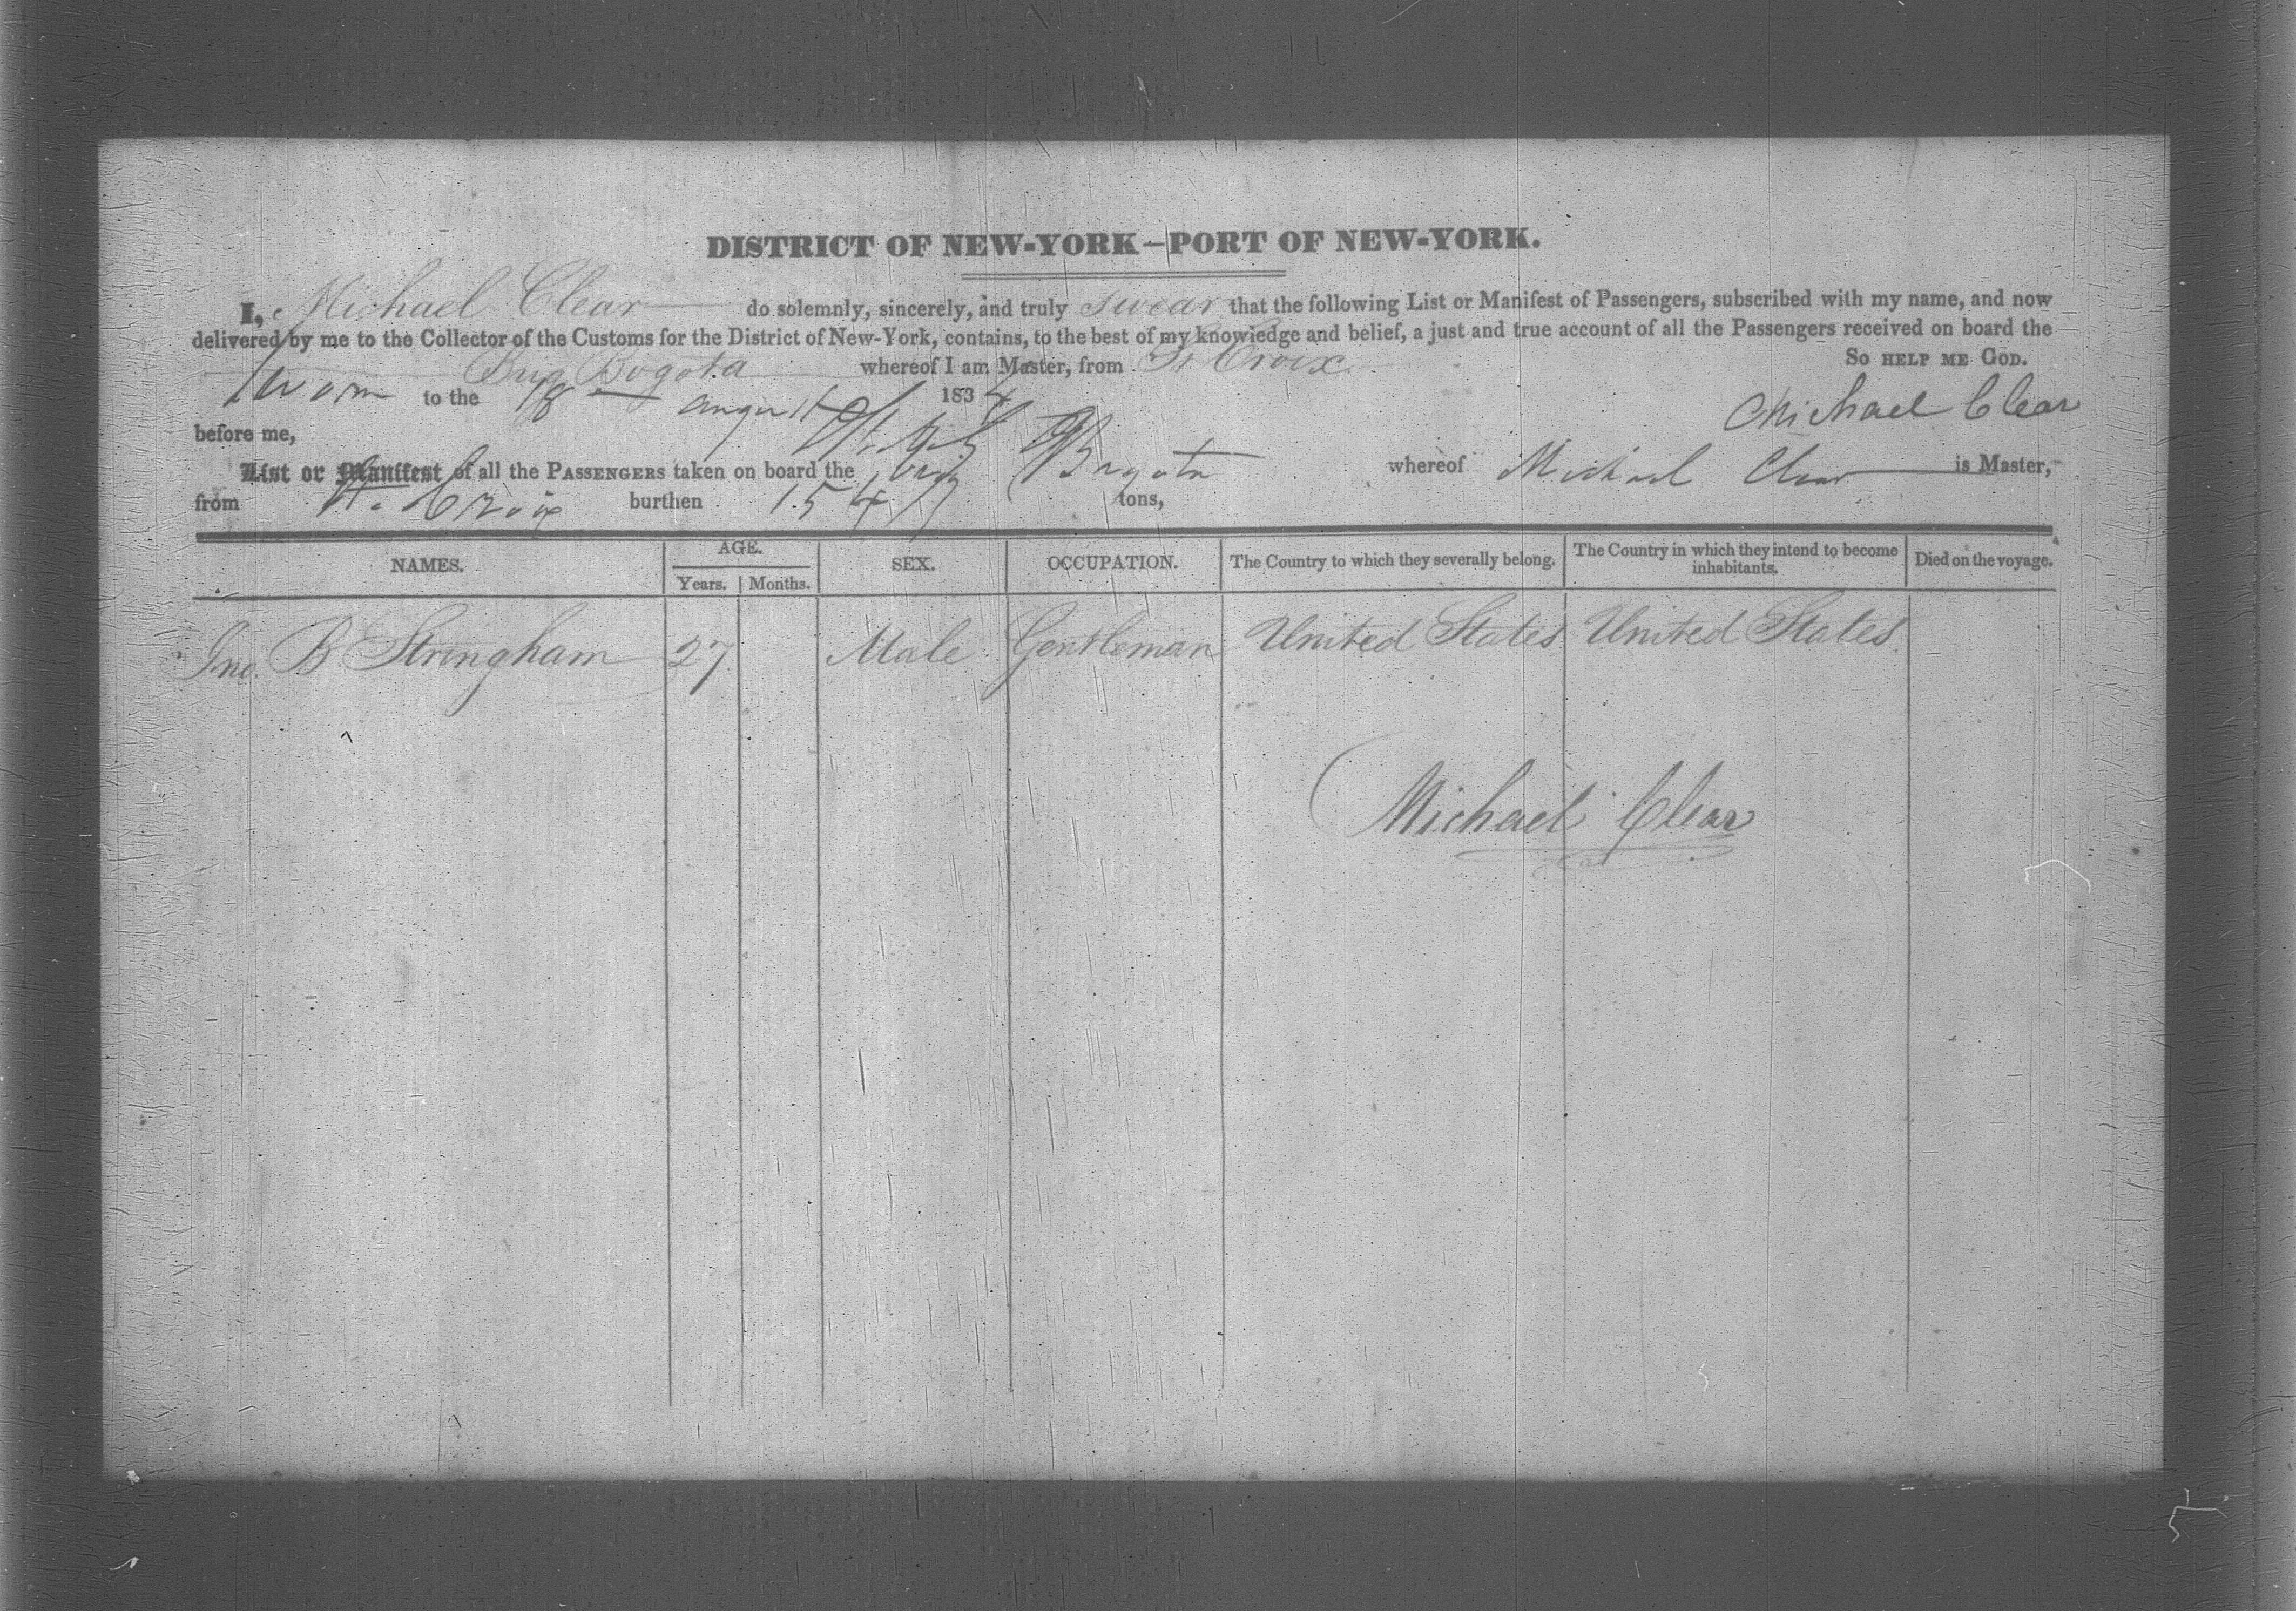 DISTRICT OF NEW-YORK—PORT OF NEW-YORK.
I, Michael Clear do solemnly, sincerely, and truly swear that the following List or Manifest of Passengers, subscribed with my name, and now
delivered by me to the Collector of the Customs for the District of New-York, contains, to the best of my knowledge and belief, a just and true account of all the Passengers received on board the
Brig Bogota whereof I am Master, from St Croix So HELP ME GOD.
Sworn to the 18 August 1834 Michael Clear
before me,
List or Manifest of all the PASSENGERS taken on board the brig Bogota whereof Michael Clear is Master,
from St. Croix burthen 154 tons,
NAMES. AGE. SEX. OCCUPATION. The Country to which they severally belong. The Country in which they intend to become inhabitants. Died on the voyage.
Years. Months.
Jno. B Stringham 27 Male Gentleman United States United States.
Michael Clear